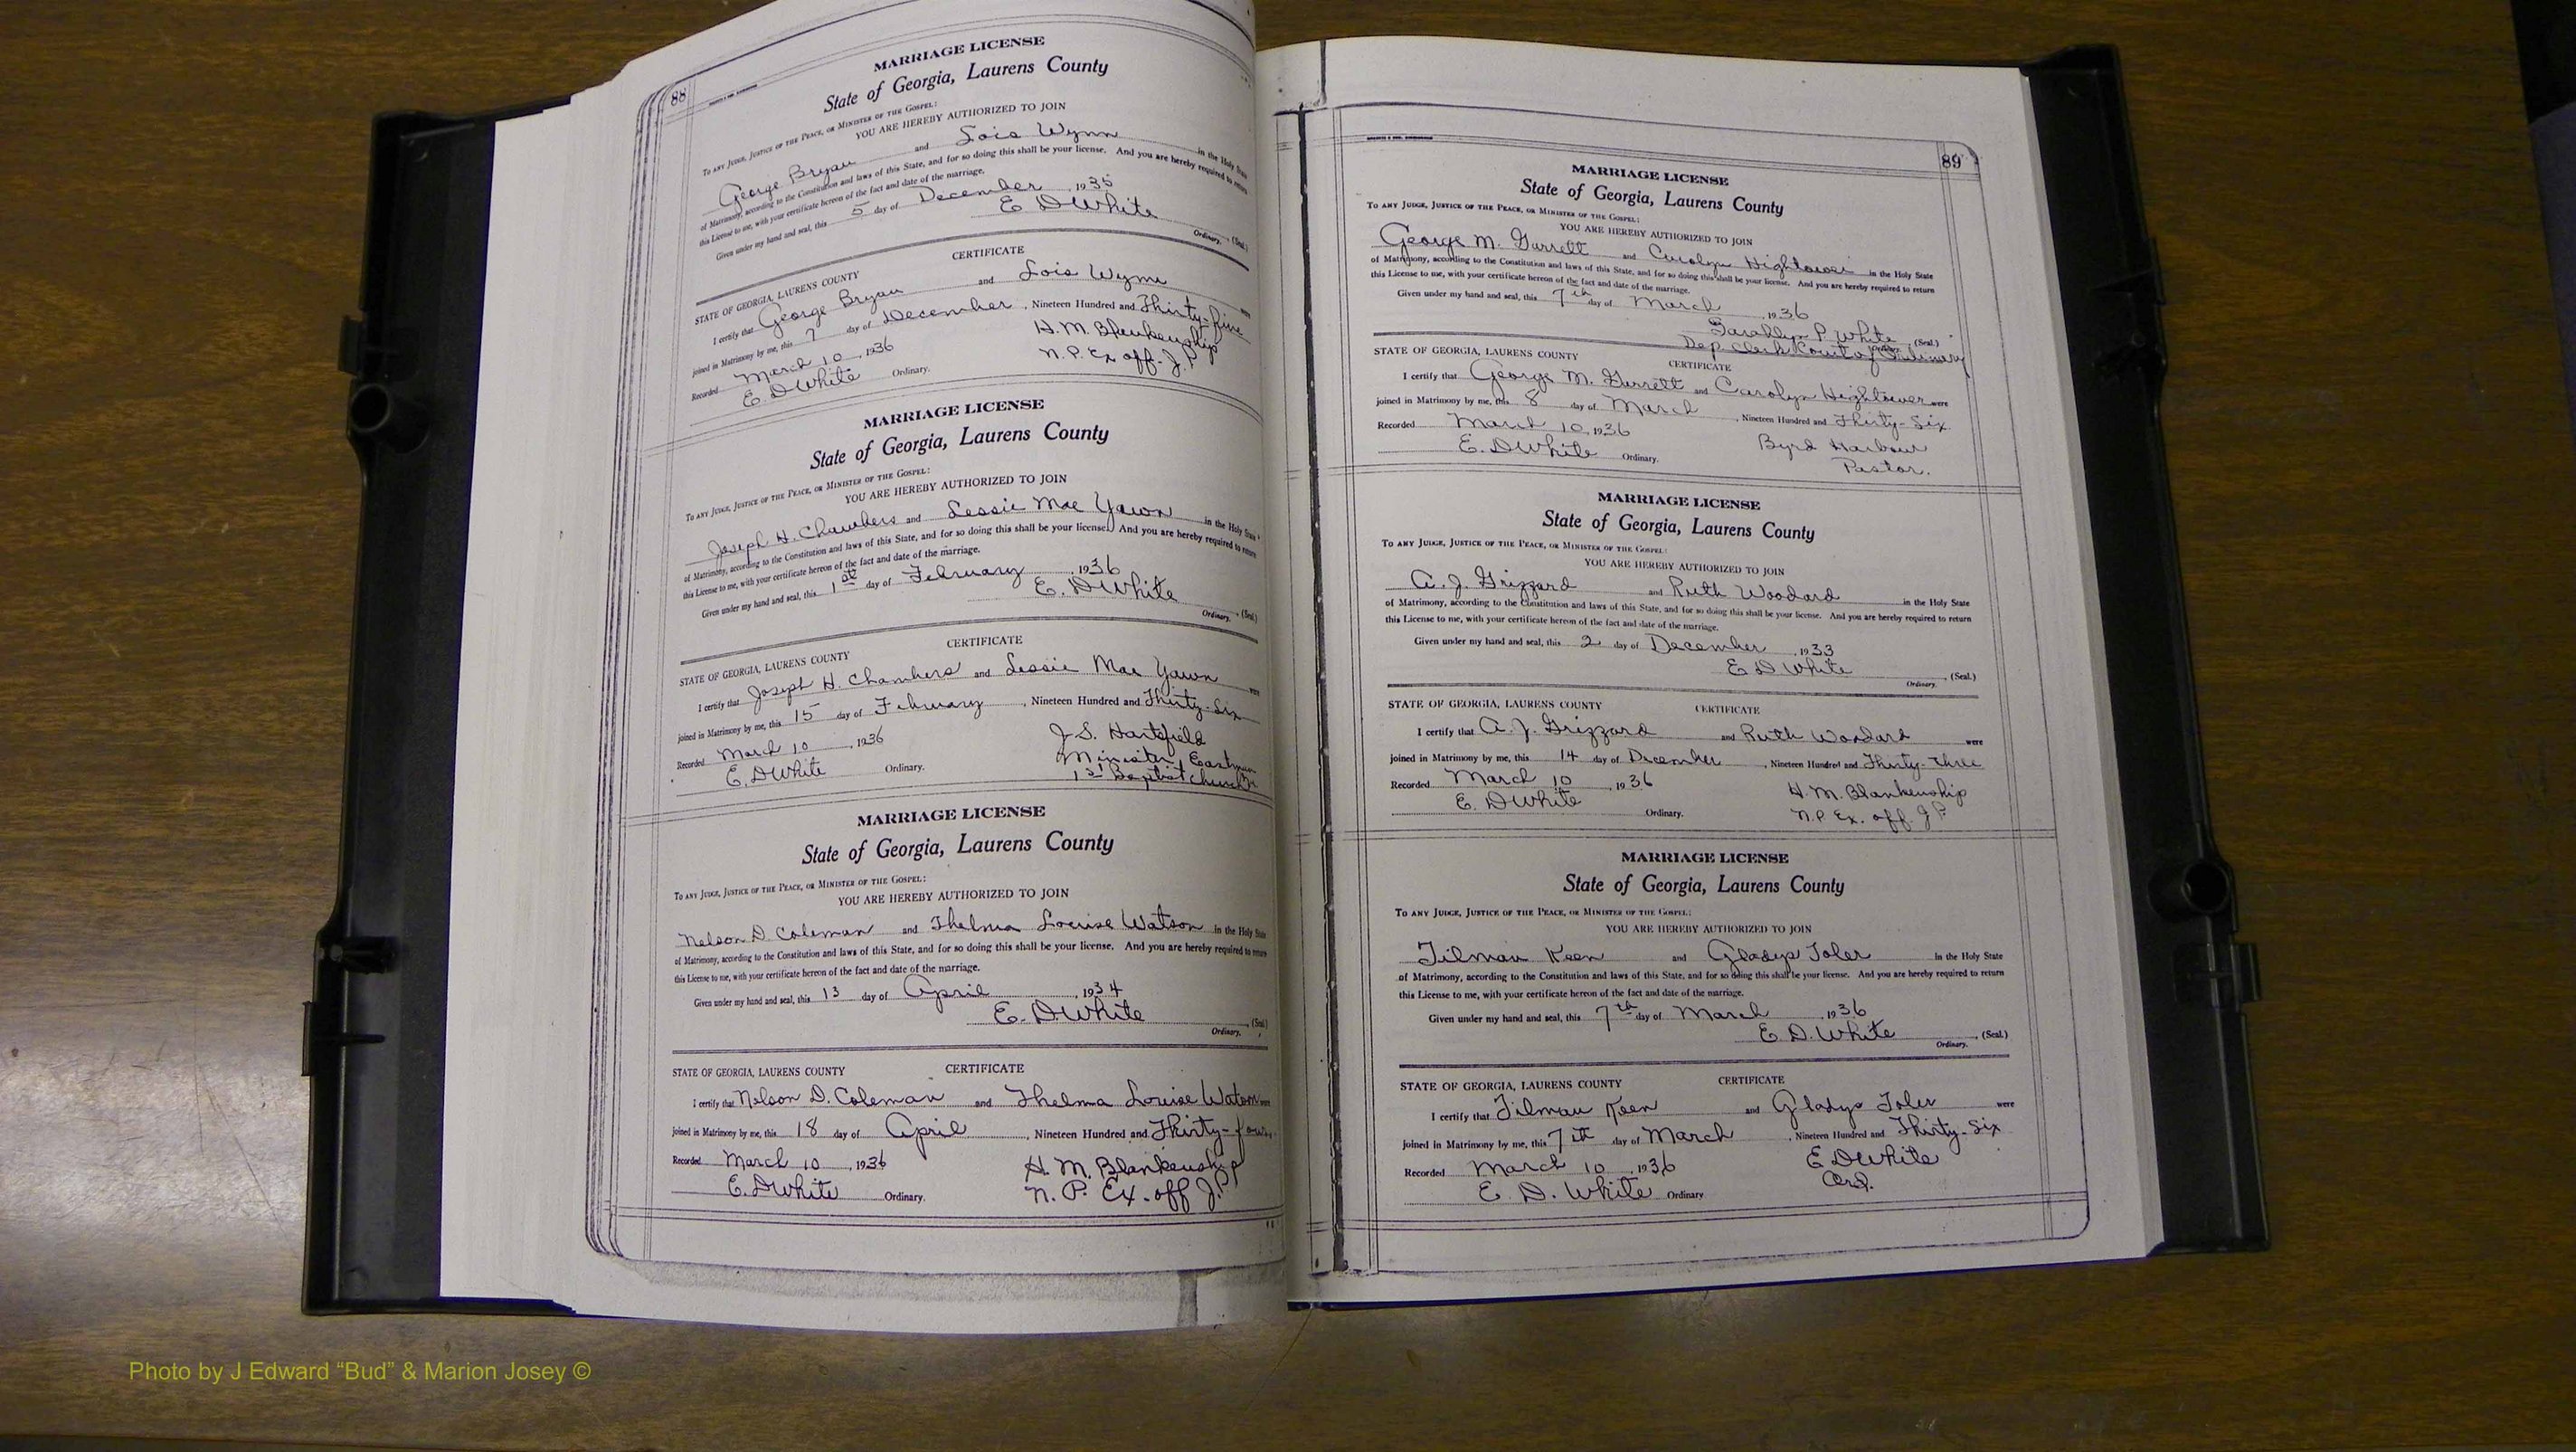 88
MARRIAGE LICENSE
State of Georgia, Laurens County
TO ANY JUDGE, JUSTICE OF THE PEACE, OR MINISTER OF THE GOSPEL:
YOU ARE HEREBY AUTHORIZED TO JOIN
George Bryan and Lois Wynn in the Holy State
of Matrimony, according to the Constitution and laws of this State, and for so doing this shall be your license. And you are hereby required to return
this License to me, with your certificate hereon of the fact and date of the marriage.
Given under my hand and seal, this 5 day of December, 1935
E D White
Ordinary. (Seal)
CERTIFICATE
STATE OF GEORGIA, LAURENS COUNTY
I certify that George Bryan and Lois Wynn were
joined in Matrimony by me, this 7 day of December, Nineteen Hundred and Thirty-five
Recorded March 10, 1936
H. M. Blankenship
E. D White Ordinary.
N. P. Ex off. J. P
MARRIAGE LICENSE
State of Georgia, Laurens County
TO ANY JUDGE, JUSTICE OF THE PEACE, OR MINISTER OF THE GOSPEL:
YOU ARE HEREBY AUTHORIZED TO JOIN
Joseph H. Chambers and Lessie Mae Yawn in the Holy State
of Matrimony, according to the Constitution and laws of this State, and for so doing this shall be your license. And you are hereby required to return
this License to me, with your certificate hereon of the fact and date of the marriage.
Given under my hand and seal, this 1st day of February, 1936
E. D White
Ordinary. (Seal)
CERTIFICATE
STATE OF GEORGIA, LAURENS COUNTY
I certify that Joseph H. Chambers and Lessie Mae Yawn were
joined in Matrimony by me, this 15 day of February, Nineteen Hundred and Thirty-Six
Recorded March 10, 1936
J. S. Hartsfield
E. D White Ordinary.
Minister, Eastman
1st Baptist Church
MARRIAGE LICENSE
State of Georgia, Laurens County
TO ANY JUDGE, JUSTICE OF THE PEACE, OR MINISTER OF THE GOSPEL:
YOU ARE HEREBY AUTHORIZED TO JOIN
Nelson D. Coleman and Thelma Louise Watson in the Holy State
of Matrimony, according to the Constitution and laws of this State, and for so doing this shall be your license. And you are hereby required to return
this License to me, with your certificate hereon of the fact and date of the marriage.
Given under my hand and seal, this 13 day of April, 1934
E. D White
Ordinary. (Seal)
STATE OF GEORGIA, LAURENS COUNTY CERTIFICATE
I certify that Nelson D. Coleman and Thelma Louise Watson were
joined in Matrimony by me, this 18 day of April, Nineteen Hundred and Thirty-four
Recorded March 10, 1936
H. M. Blankenship
E. D White Ordinary.
N. P. Ex. off J. P
89
MARRIAGE LICENSE
State of Georgia, Laurens County
TO ANY JUDGE, JUSTICE OF THE PEACE, OR MINISTER OF THE GOSPEL:
YOU ARE HEREBY AUTHORIZED TO JOIN
George M. Garrett and Carolyn Hightower in the Holy State
of Matrimony, according to the Constitution and laws of this State, and for so doing this shall be your license. And you are hereby required to return
this License to me, with your certificate hereon of the fact and date of the marriage.
Given under my hand and seal, this 7th day of March, 1936
P. White (Seal)
Dep. Clerk Court of Ordinary
STATE OF GEORGIA, LAURENS COUNTY CERTIFICATE
I certify that George M. Garrett and Carolyn Hightower were
joined in Matrimony by me, this 8 day of March, Nineteen Hundred and Thirty-Six
Recorded March 10, 1936
Byrd Harbour
E. D White Ordinary.
Pastor.
MARRIAGE LICENSE
State of Georgia, Laurens County
TO ANY JUDGE, JUSTICE OF THE PEACE, OR MINISTER OF THE GOSPEL:
YOU ARE HEREBY AUTHORIZED TO JOIN
A. J. Grizzard and Ruth Woodard in the Holy State
of Matrimony, according to the Constitution and laws of this State, and for so doing this shall be your license. And you are hereby required to return
this License to me, with your certificate hereon of the fact and date of the marriage.
Given under my hand and seal, this 2 day of December, 1933
E D White (Seal.)
Ordinary.
STATE OF GEORGIA, LAURENS COUNTY CERTIFICATE
I certify that A. J. Grizzard and Ruth Woodard were
joined in Matrimony by me, this 14 day of December, Nineteen Hundred and Thirty-three
Recorded March 10, 1936
H. M. Blankenship
E. D White Ordinary.
N. P Ex. off. J P.
MARRIAGE LICENSE
State of Georgia, Laurens County
TO ANY JUDGE, JUSTICE OF THE PEACE, OR MINISTER OF THE GOSPEL:
YOU ARE HEREBY AUTHORIZED TO JOIN
Tilman Keen and Gladys Toler in the Holy State
of Matrimony, according to the Constitution and laws of this State, and for so doing this shall be your license. And you are hereby required to return
this License to me, with your certificate hereon of the fact and date of the marriage.
Given under my hand and seal, this 7th day of March, 1936
E. D. White (Seal)
Ordinary.
STATE OF GEORGIA, LAURENS COUNTY CERTIFICATE
I certify that Tilman Keen and Gladys Toler were
joined in Matrimony by me, this 7th day of March, Nineteen Hundred and Thirty-Six
Recorded March 10, 1936
E D White
E. D. White Ordinary
Ord.
Photo by J Edward “Bud” & Marion Josey ©